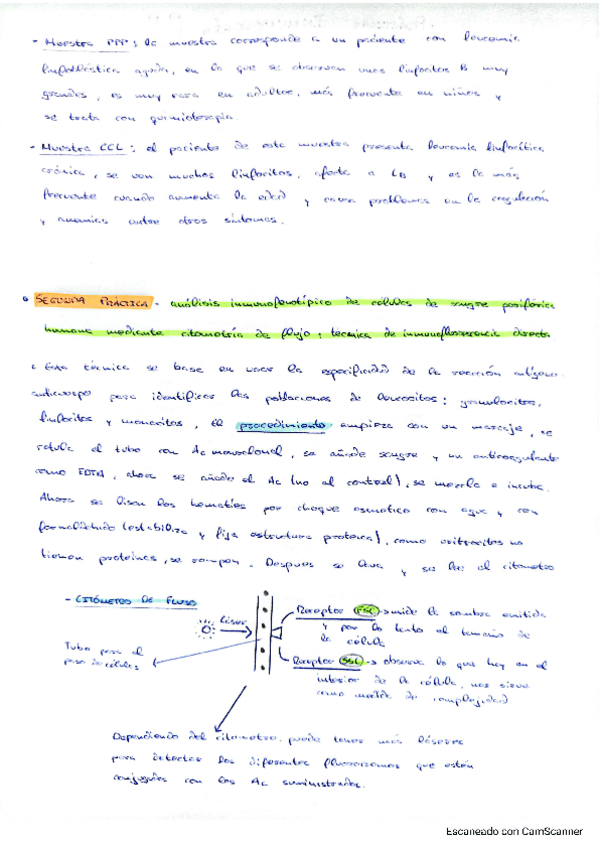 - Muestra PPP: la muestra corresponde a un paciente con leucemia
linfoblástica aguda, en la que se observan unos linfocitos B muy
grandes, es muy rara en adultos, más frecuente en niños y
se trata con quimioterapia.
- Muestra CCL: el paciente de esta muestra presenta leucemia linfocítica
crónica, se ven muchos linfocitos, afecta a LB y es la más
frecuente cuando aumenta la edad y causa problemas en la coagulación
y anemias entre otros síntomas.
SEGUNDA PRÁCTICA - análisis inmunofenotípico de células de sangre periférica
humana mediante citometría de flujo: técnica de inmunofluorescencia directa
Esta técnica se base en usar la especificidad de la reacción antígeno-
anticuerpo para identificar las poblaciones de leucocitos: granulocitos,
linfocitos y monocitos. El procedimiento empieza con un marcaje, se
rotula el tubo con Ac monoclonal, se añade sangre y un anticoagulante
como EDTA, ahora se añade el Ac (no al control), se mezcla e incuba.
Ahora se lisan los hematíes por choque osmótico con agua y con
formaldehído (estabiliza y fija estructura proteica), como eritrocitos no
tienen proteínas, se rompen. Después se lava y se lee al citómetro
- CITÓMETRO DE FLUJO
Láser
Tubo para el
paso de células
Receptor FSC → mide la sombra emitida
y por lo tanto el tamaño de
la célula
Receptor SSC → observa lo que hay en el
interior de la célula, nos sirve
como medida de complejidad
Dependiendo del citómetro, puede tener más láseres
para detectar los diferentes fluorocromos que están
conjugados con los Ac suministrados.
Escaneado con CamScanner